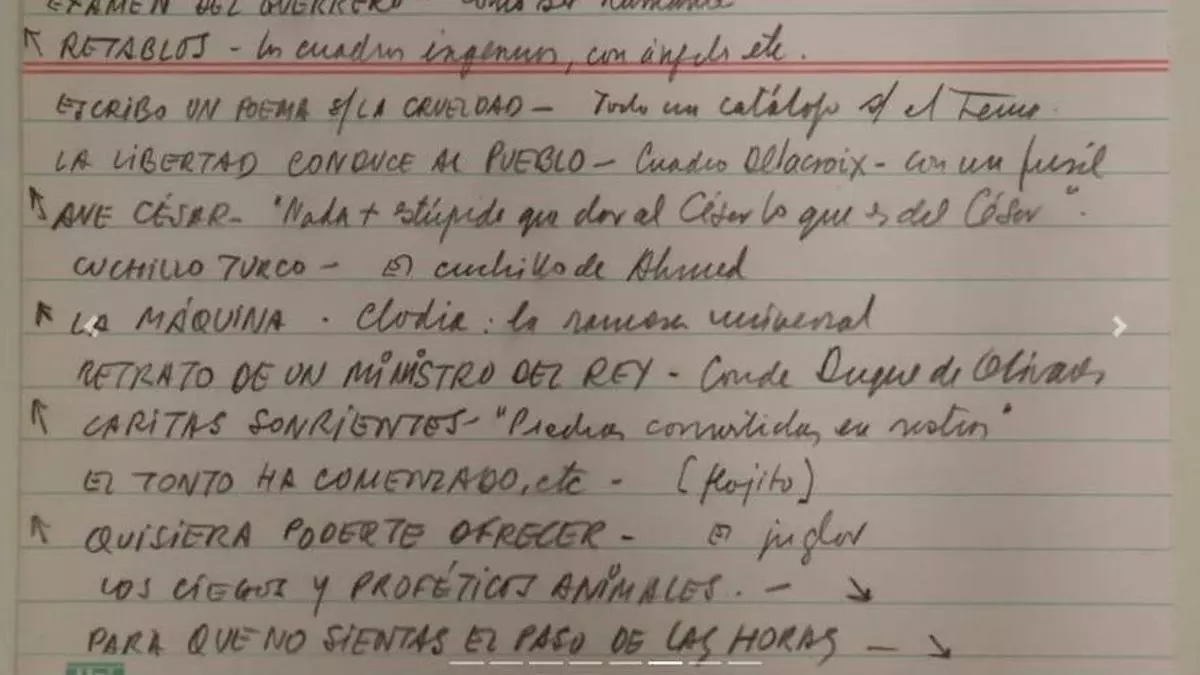 EXAMEN DEL GUERRERO - 
RETABLOS - los cuadros ingenuos, con ángeles etc.
ESCRIBO UN POEMA S/LA CRUELDAD - Todo un catálogo s/ el Tema.
LA LIBERTAD CONDUCE AL PUEBLO - Cuadro Delacroix - con un fusil
AVE CÉSAR - "Nada + estúpido que dar al César lo que es del César".
CUCHILLO TURCO - El cuchillo de Ahmed
LA MÁQUINA. Clodia: la ramera universal
RETRATO DE UN MINISTRO DEL REY - Conde Duque de Olivares
CARITAS SONRIENTES - "Piedras convertidas en rostros"
EL TONTO HA COMENZADO, etc - (flojito)
QUISIERA PODERTE OFRECER - El juglar
LOS CIEGOS Y PROFÉTICOS ANIMALES. -
PARA QUE NO SIENTAS EL PASO DE LAS HORAS -